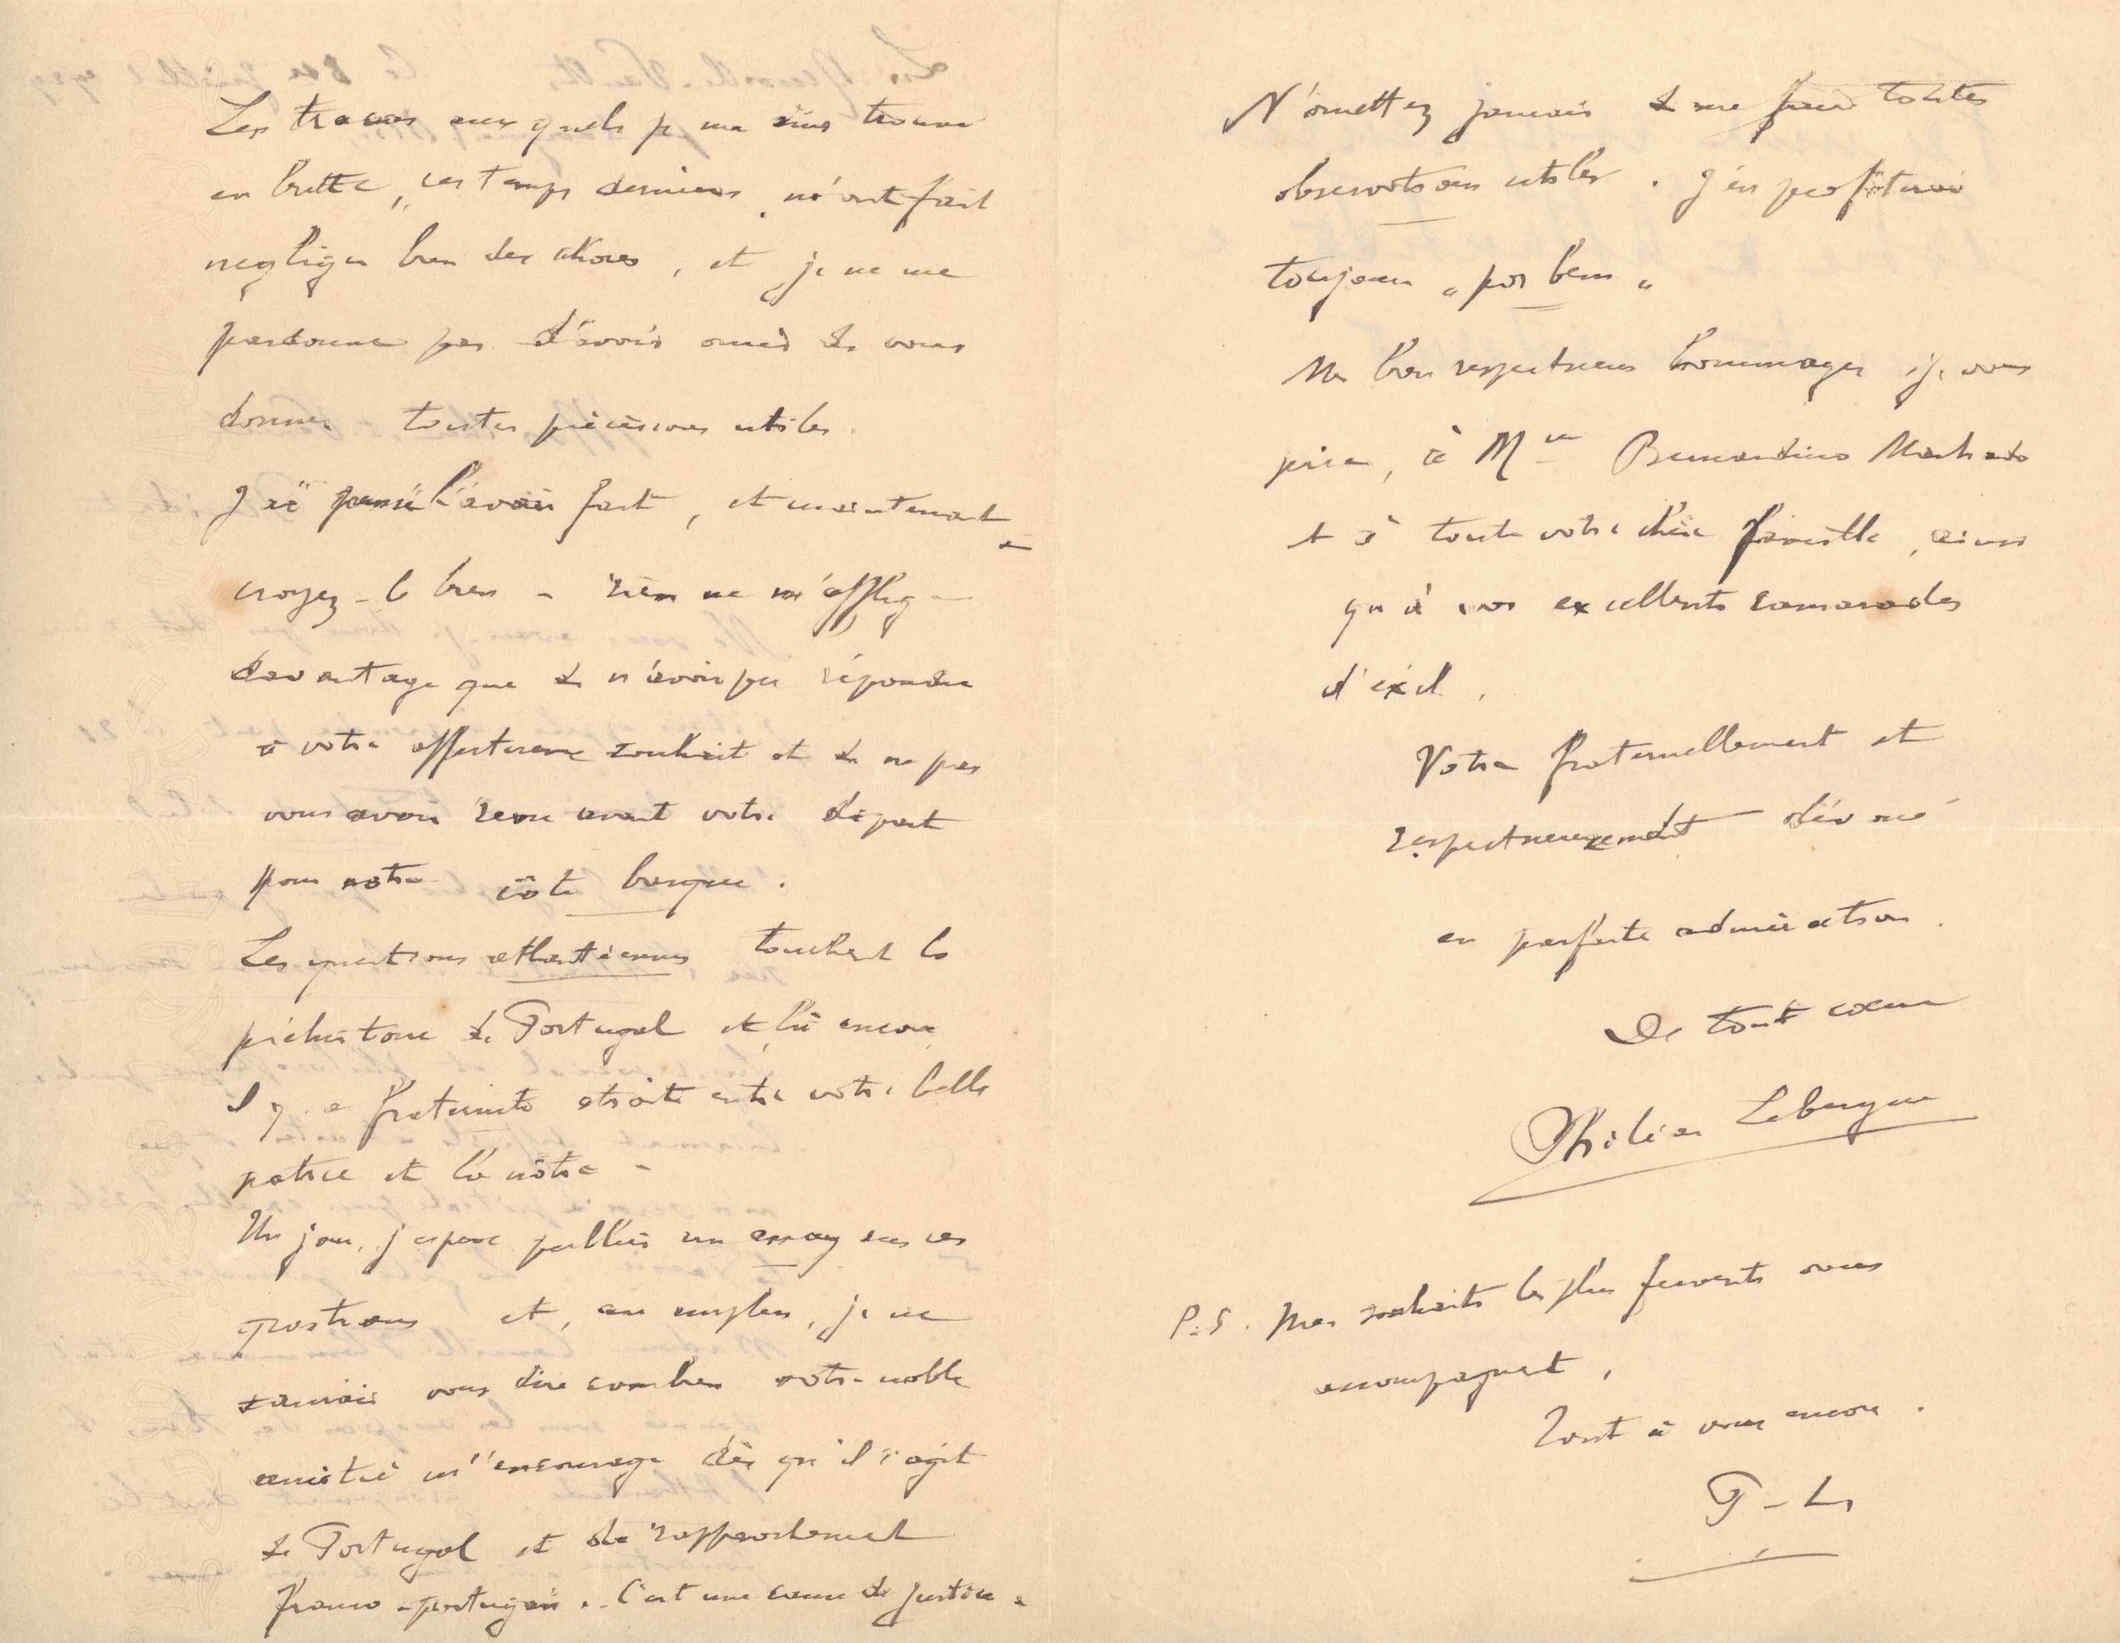 Les tracas auxquels je me suis trouvé
en butte, ces temps derniers, m'ont fait
négliger bien des choses, et je ne me
pardonne pas d'avoir omis de vous
donner toutes précisions utiles.
J'ai pensé l'avoir fait, et maintenant -
croyez-le bien - rien ne m'afflige
davantage que de n'avoir pu répondre
à votre affectueux souhait et de ne pas
vous avoir revu avant votre départ
pour notre côte basque.
Les questions atlantéennes touchent la
préhistoire de Portugal et là encore
il y a fraternité étroite entre votre belle
patrie et la nôtre -
Un jour, j'espère publier un essay sur ces
questions et, au surplus, je ne
saurais vous dire combien votre noble
amitié m'encourage dès qu'il s'agit
de Portugal et de rapprochement
franco-portugais. C'est une œuvre de justice.
N'omettez jamais de me faire toutes
observations utiles. J'en profiterai
toujours "por bem"
Mes bien respectueux hommages, je vous
prie, à Mme Bernardino Machado
et à toute votre chère famille, ainsi
qu'à vos excellents camarades
d'exil.
Votre fraternellement et
respectueusement dévoué
en parfaite admiration.
De tout cœur
Philéas Lebesgue
P.S. Mes souhaits les plus fervents vous
accompagnent,
Tout à vous encore.
P-L